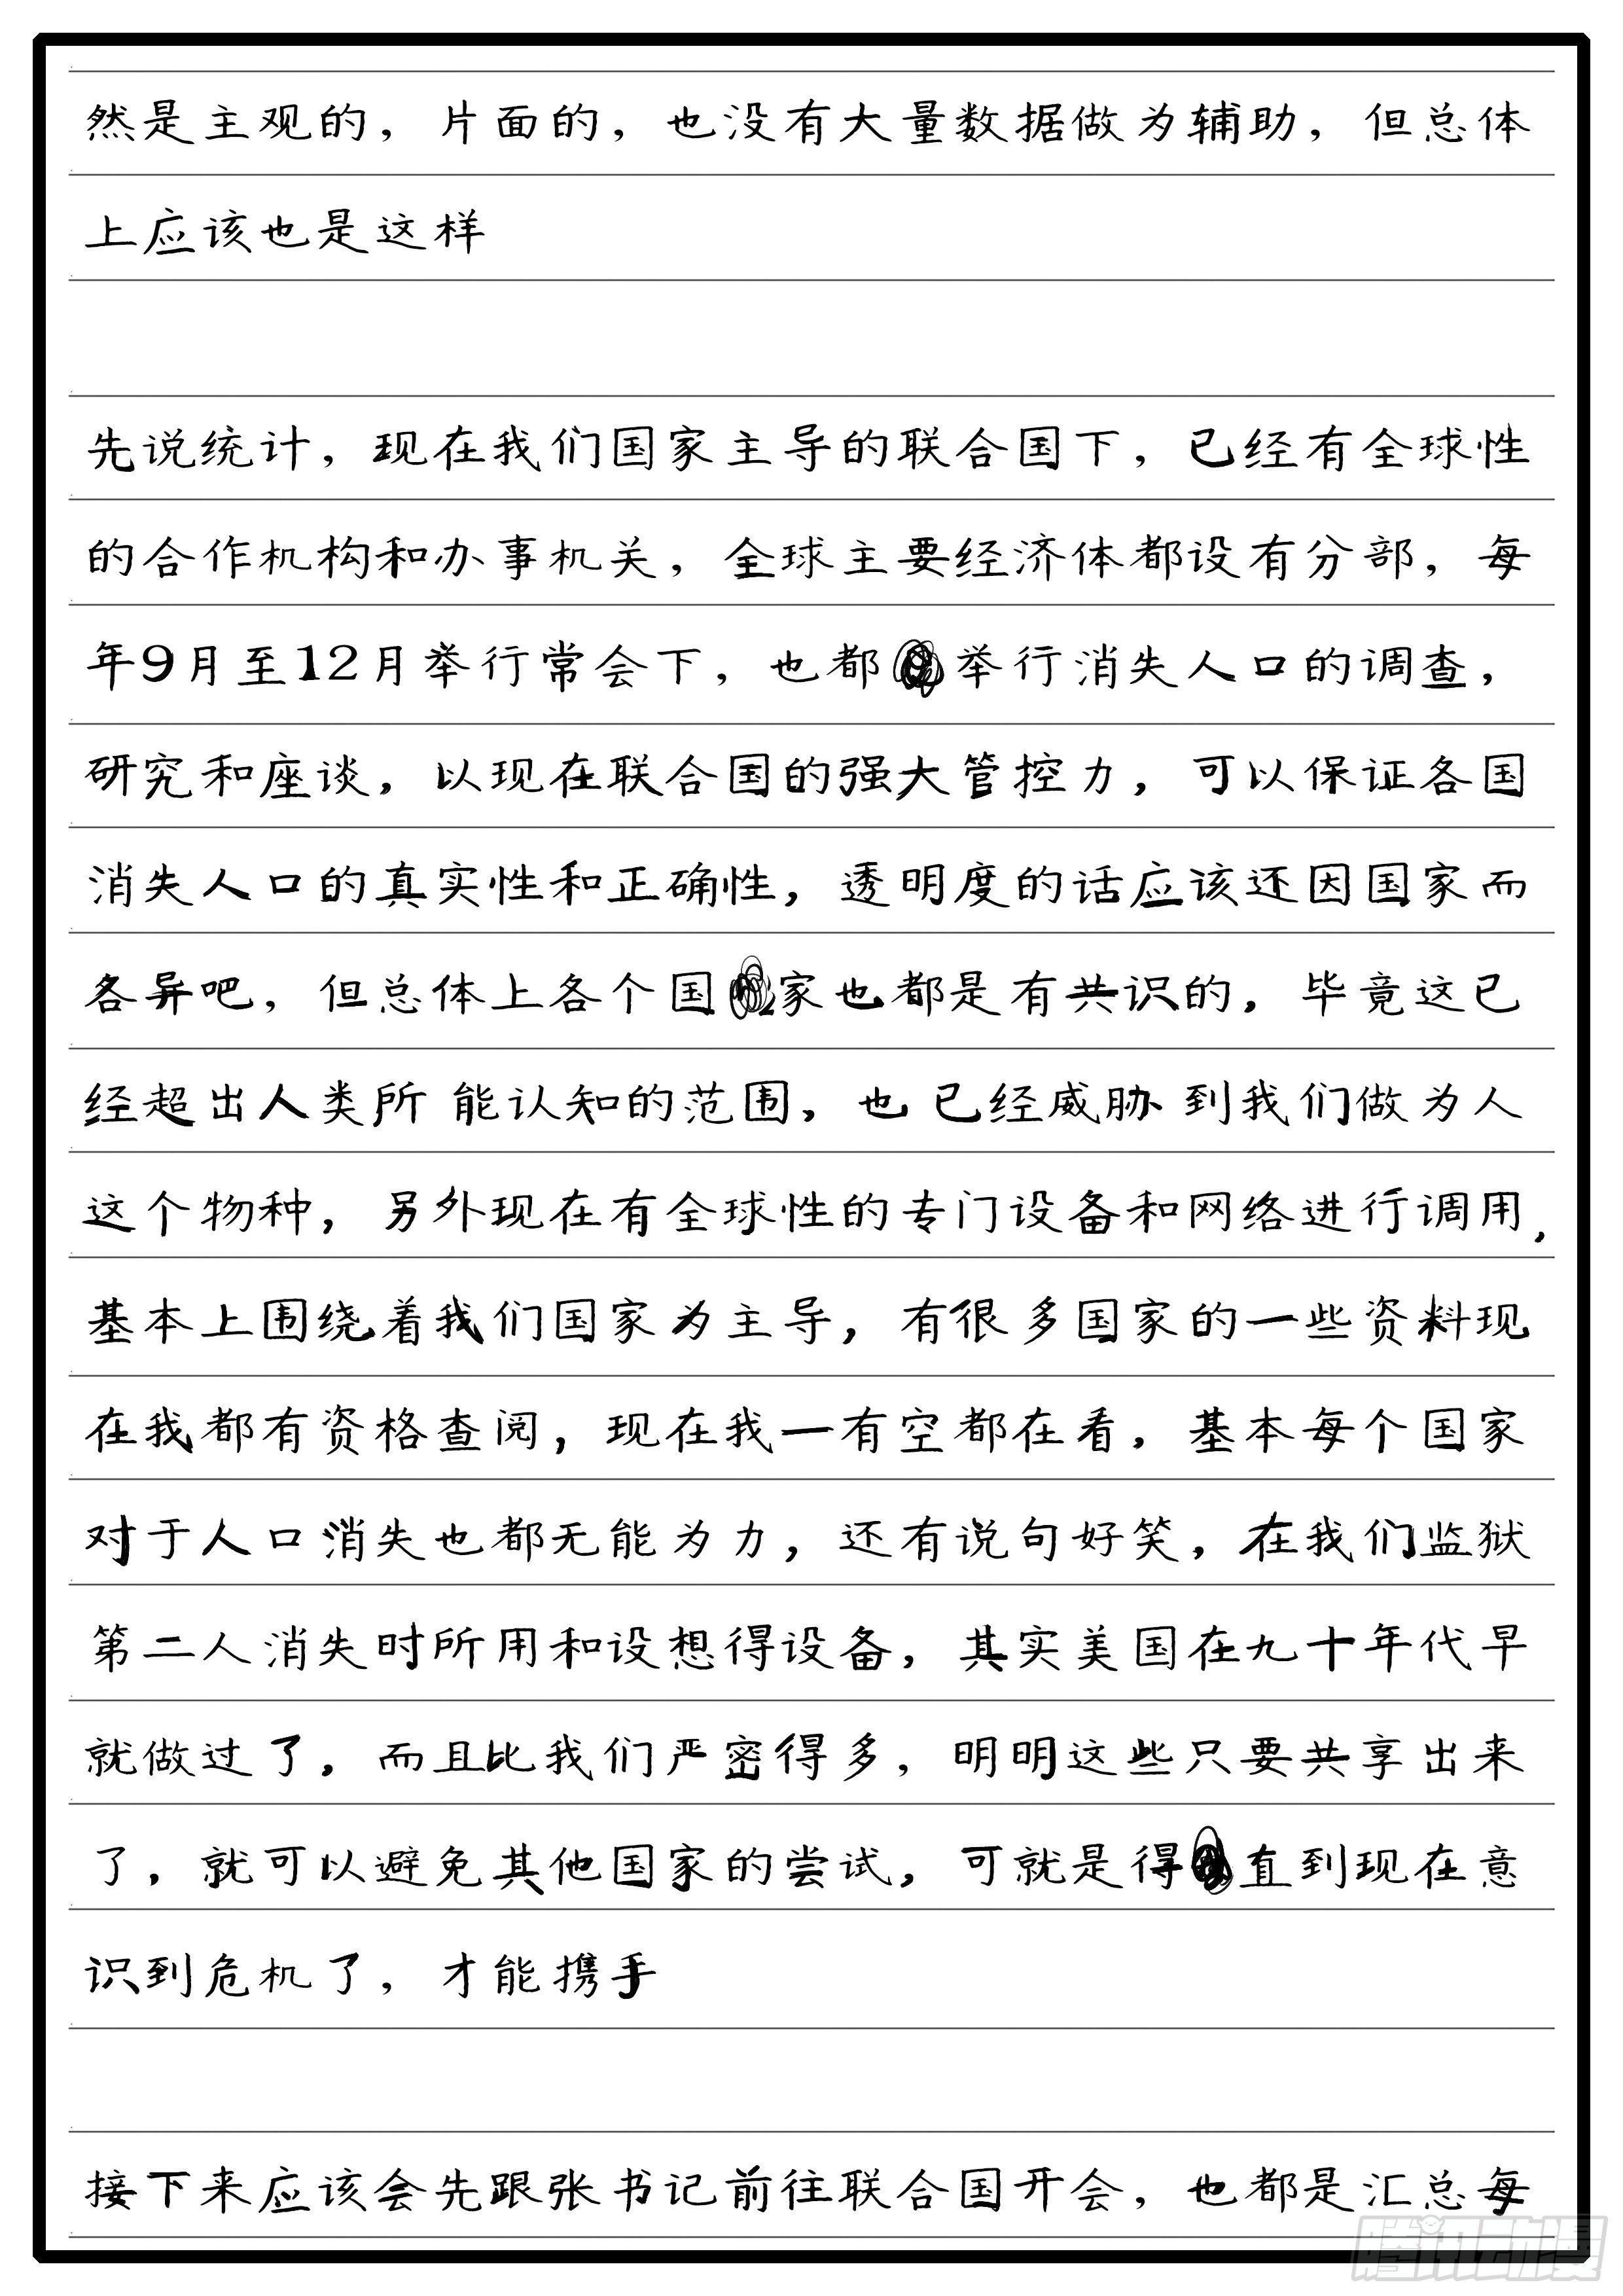 然是主观的，片面的，也没有大量数据做为辅助，但总体
上应该也是这样
先说统计，现在我们国家主导的联合国下，已经有全球性
的合作机构和办事机关，全球主要经济体都设有分部，每
年9月至12月举行常会下，也都举行消失人口的调查，
研究和座谈，以现在联合国的强大管控力，可以保证各国
消失人口的真实性和正确性，透明度的话应该还因国家而
各异吧，但总体上各个国家也都是有共识的，毕竟这已
经超出人类所能认知的范围，也已经威胁到我们做为人
这个物种，另外现在有全球性的专门设备和网络进行调用，
基本上围绕着我们国家为主导，有很多国家的一些资料现
在我都有资格查阅，现在我一有空都在看，基本每个国家
对于人口消失也都无能为力，还有说句好笑，在我们监狱
第二人消失时所用和设想得设备，其实美国在九十年代早
就做过了，而且比我们严密得多，明明这些只要共享出来
了，就可以避免其他国家的尝试，可就是得直到现在意
识到危机了，才能携手
接下来应该会先跟张书记前往联合国开会，也都是汇总每
腾讯动漫